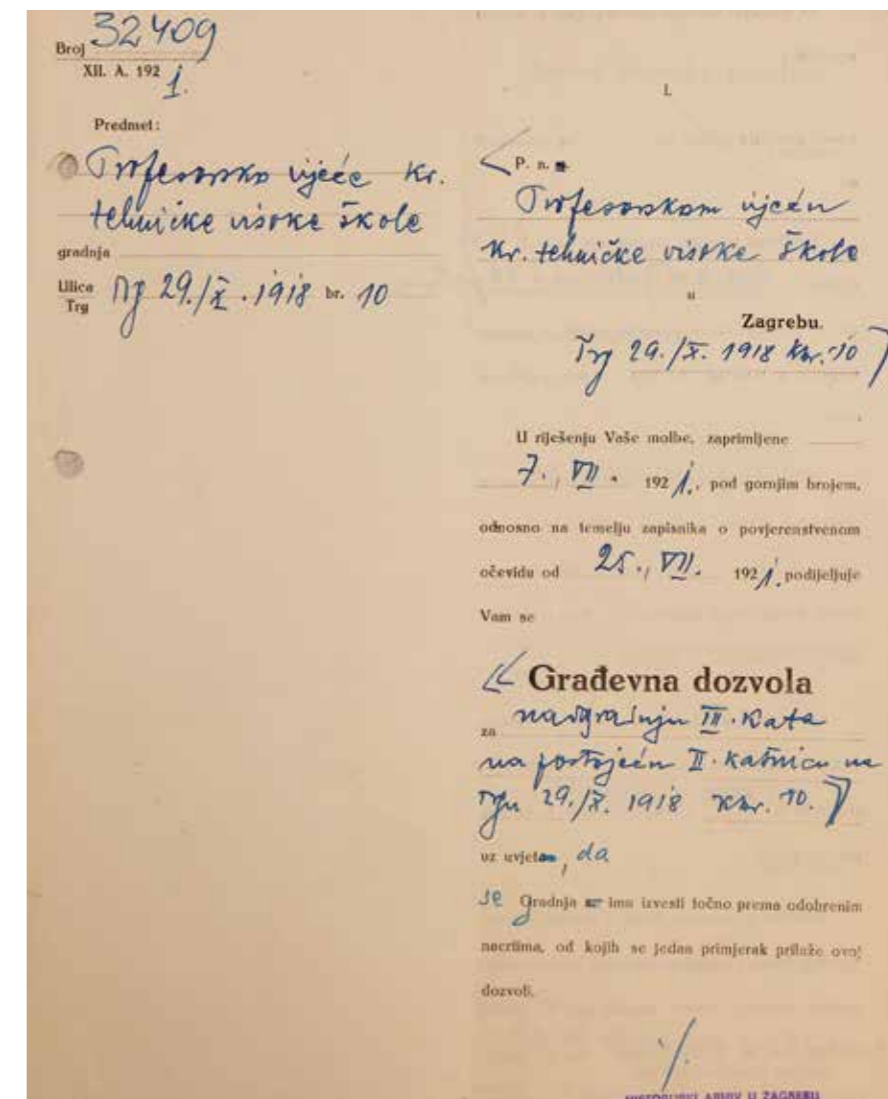 Broj 32409
XII. A. 1921.
Predmet:
Profesorsko vijeće kr.
tehničke visoke škole
gradnja
Ulica
Trg Trg 29./X. 1918 br. 10
I.
P. n.
Profesorskom vijeću
kr. tehničke visoke škole
u
Zagrebu.
Trg 29./X. 1918 kbr. 10
U riješenju Vaše molbe, zaprimljene
7., VII. 1921., pod gornjim brojem,
odnosno na temelju zapisnika o povjerenstvenom
očevidu od 25., VII. 1921. podijeljuje
Vam se
Građevna dozvola
za nadgradnju III. kata
na postojeću II. katnicu na
Trgu 29./X. 1918 kbr. 10.
uz uvjet, da
se Gradnja ima izvesti točno prema odobrenim
nacrtima, od kojih se jedan primjerak prilaže ovoj
dozvoli.
./.
HISTORIJSKI ARHIV U ZAGREBU